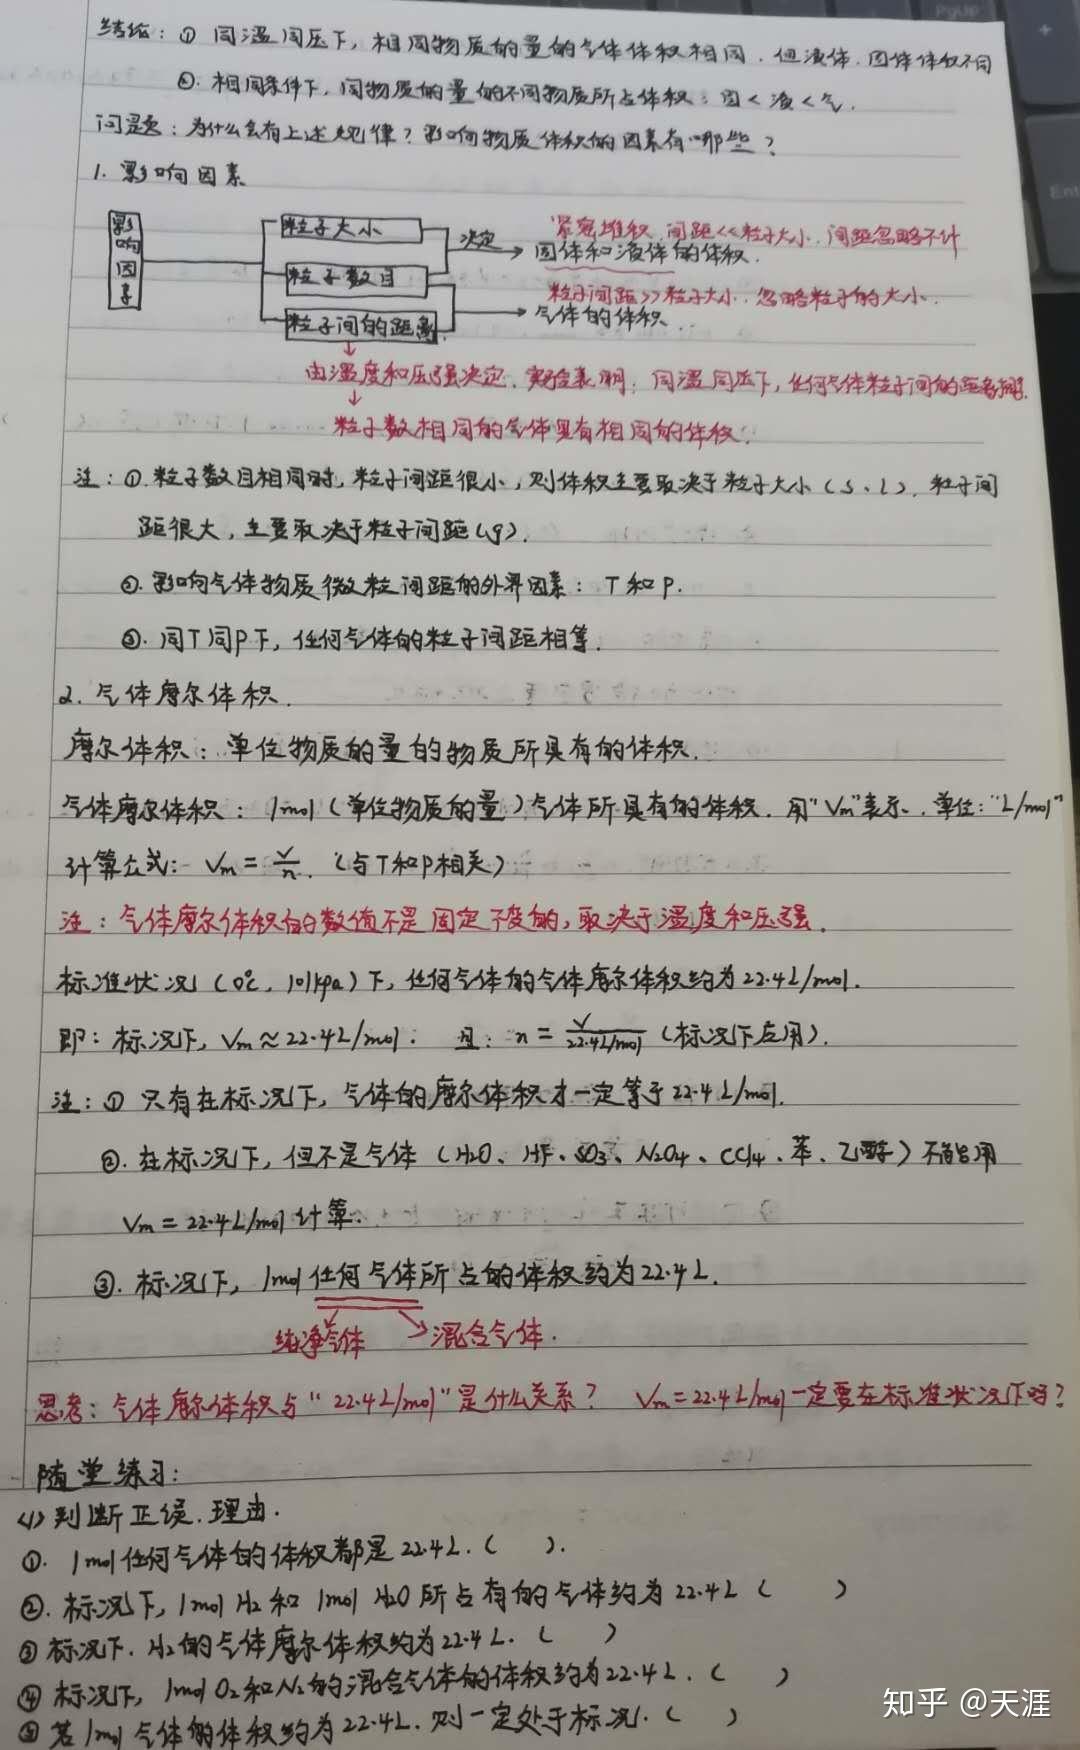 结论：① 同温同压下，相同物质的量的气体体积相同，但液体、固体体积不同
②. 相同条件下，同物质的量的不同物质所占体积：固<液<气.
问题：为什么会有上述规律？影响物质体积的因素有哪些？
1. 影响因素
影响因素
粒子大小
粒子数目
粒子间的距离
决定
紧密堆积，间距<<粒子大小，间距忽略不计
固体和液体的体积.
粒子间距>>粒子大小，忽略粒子的大小.
气体的体积
由温度和压强决定，实验表明：同温同压下，任何气体粒子间的距离相等.
粒子数相同的气体具有相同的体积.
注：①.粒子数目相同时，粒子间距很小，则体积主要取决于粒子大小（s、l），粒子间
距很大，主要取决于粒子间距(g).
②. 影响气体物质微粒间距的外界因素：T和P.
③. 同T同P下，任何气体的粒子间距相等.
2. 气体摩尔体积.
摩尔体积：单位物质的量的物质所具有的体积.
气体摩尔体积：1mol（单位物质的量）气体所具有的体积. 用"Vm"表示，单位："L/mol"
计算公式：Vm = V/n.（与T和P相关）
注：气体摩尔体积的数值不是固定不变的，取决于温度和压强.
标准状况（0℃，101kpa）下，任何气体的气体摩尔体积约为22.4L/mol.
即：标况下，Vm≈22.4L/mol； 且：n = V/22.4L/mol（标况下应用）.
注：① 只有在标况下，气体的摩尔体积才一定等于22.4L/mol.
②. 在标况下，但不是气体（H2O、HF、SO3、N2O4、CCl4、苯、乙醇）不能用
Vm = 22.4L/mol 计算.
③. 标况下，1mol任何气体所占的体积约为22.4L.
纯净气体
混合气体.
思考：气体摩尔体积与"22.4L/mol"是什么关系？ Vm=22.4L/mol一定要在标准状况下吗？
随堂练习：
(1) 判断正误.理由.
①. 1mol任何气体的体积都是22.4L.（ ）.
②. 标况下，1mol H2 和 1mol H2O 所占有的气体约为22.4L（ ）
③ 标况下. H2的气体摩尔体积约为22.4L.（ ）
④ 标况下，1mol O2和N2的混合气体的体积约为22.4L.（ ）
若1mol气体的体积约为22.4L. 则一定处于标况.（ ）
知乎 @天涯
PgUp
Ent